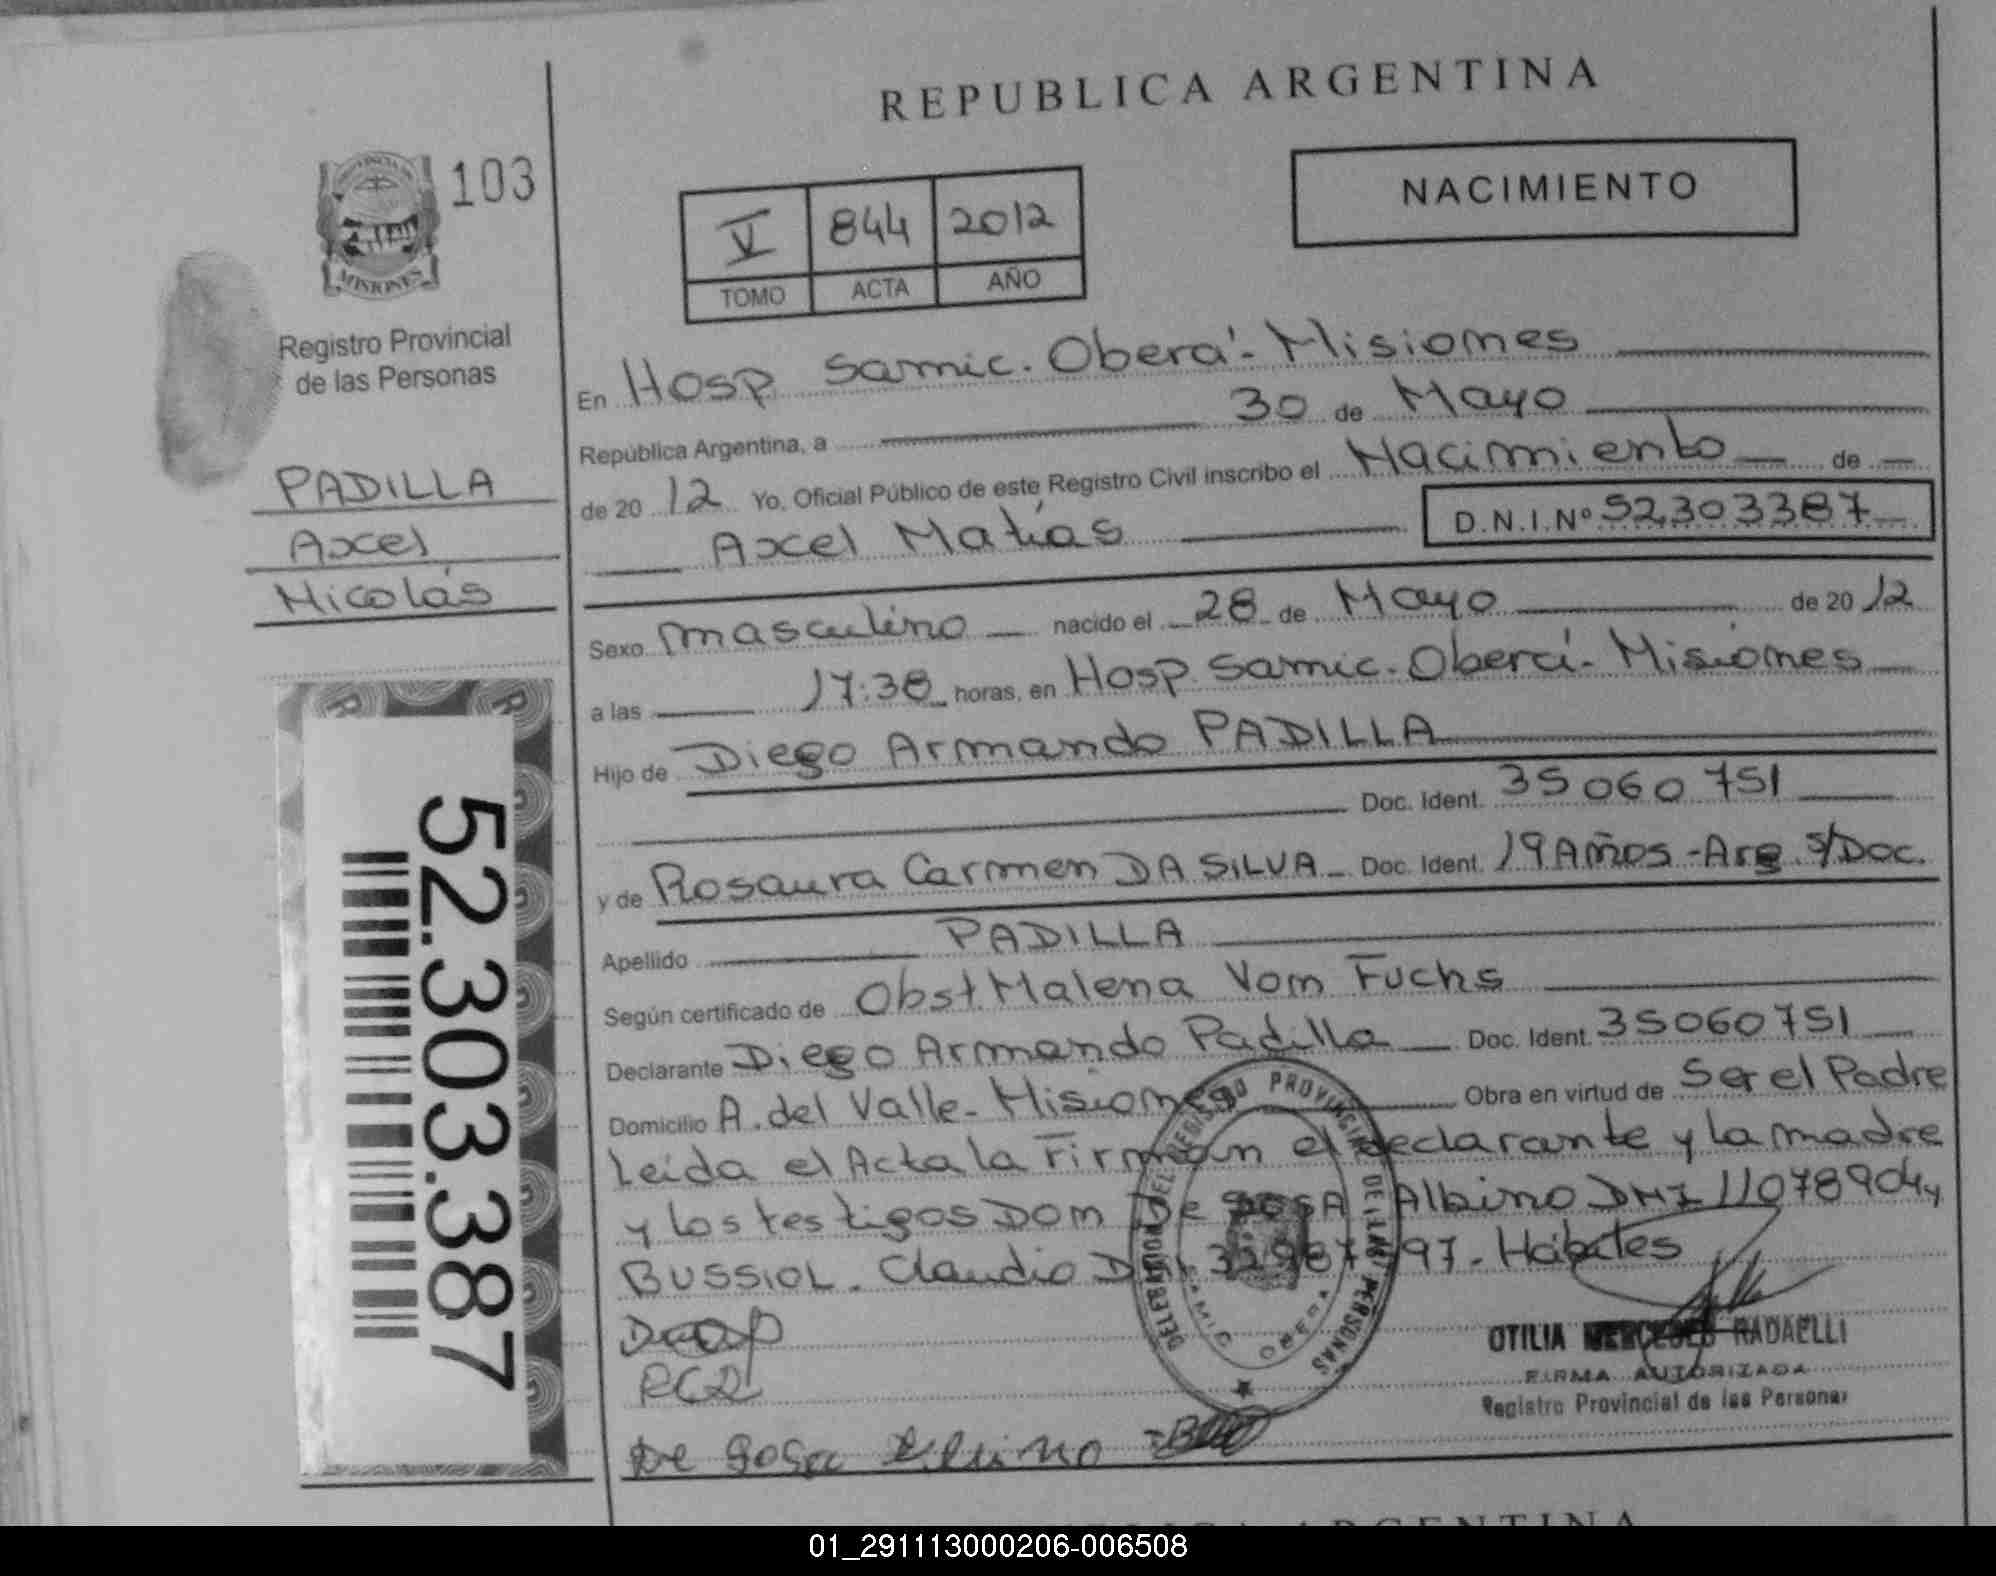 REPUBLICA ARGENTINA
103
PROVINCIA
MISIONES
Registro Provincial
de las Personas
PADILLA
Axcel
Nicolás
52.303.387
NACIMIENTO
V 844 2012
TOMO ACTA AÑO
En Hosp Samic. Oberá - Misiones
República Argentina, a 30 de Mayo
de 2012 Yo, Oficial Público de este Registro Civil inscribo el Nacimiento de
Axcel Matías D.N.I.Nº 52.303387
Sexo masculino nacido el 28 de Mayo de 2012
a las 17:38 horas, en Hosp. Samic. Oberá - Misiones
Hijo de Diego Armando PADILLA
Doc. Ident. 35060751
y de Rosaura Carmen DA SILVA Doc. Ident. 19 Años - Arg S/Doc.
Apellido PADILLA
Según certificado de Obst. Malena Vom Fuchs
Declarante Diego Armando Padilla Doc. Ident. 35060751
Domicilio A. del Valle - Misiones Obra en virtud de Ser el Padre
Leída el Acta la Firman el declarante y la madre
y los testigos DOM De SOSA Albino DNI 11078904 y
BUSSIOL. Claudio Hábiles
DELEGACION DEL REGISTRO PROVINCIAL DE LAS PERSONAS
SAMIC OBERA
RCD
De Sosa Albino
OTILIA MERCEDES RADAELLI
FIRMA AUTORIZADA
Registro Provincial de las Personas
ARGENTINA
01_291113000206-006508